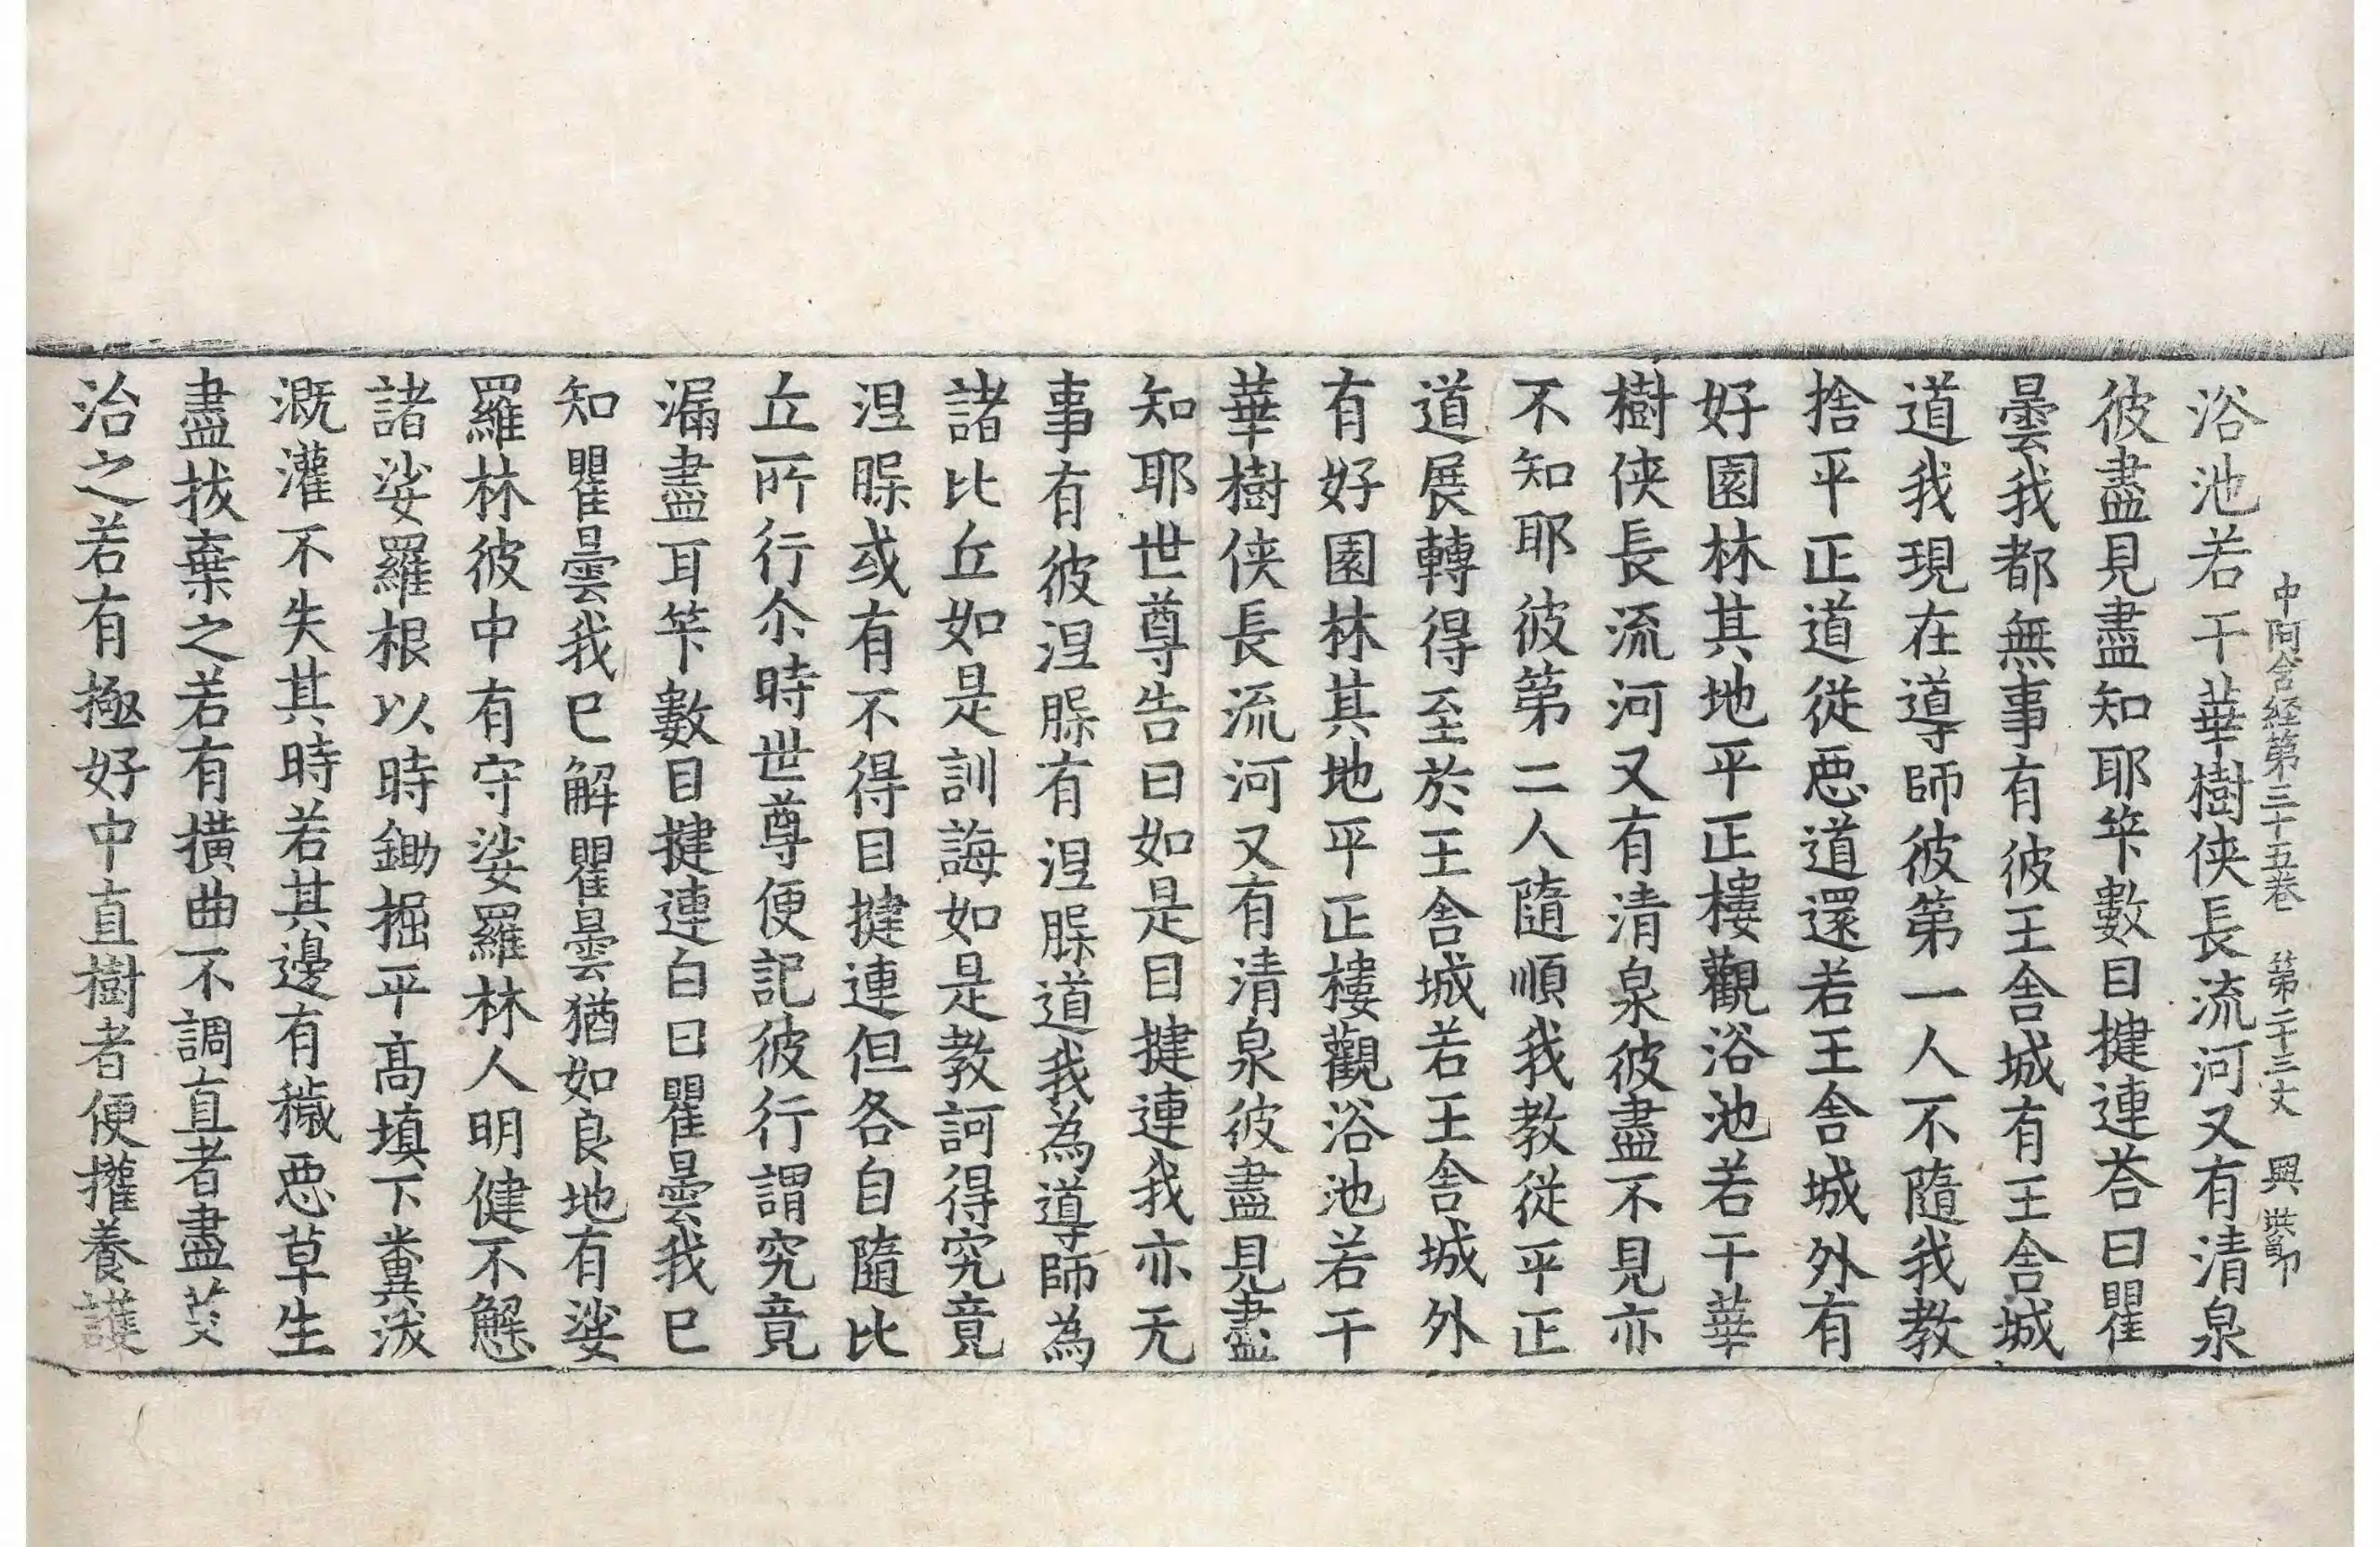 中阿含経第三十五巻 第二十三丈 興 洪節印
浴池若干華樹俠長流河又有清泉
彼盡見盡知耶䒭數目揵連荅曰瞿
曇我都無事有彼王舎城有王舎城
道我現在導師彼第一人不隨我教
捨平正道從惡道還若王舎城外有
好園林其地平正樓觀浴池若干華
樹俠長流河又有清泉彼盡不見亦
不知耶彼第二人隨順我教從平正
道展轉得至於王舎城若王舎城外
有好園林其地平正樓觀浴池若干
華樹俠長流河又有清泉彼盡見盡
知耶世尊告曰如是目揵連我亦无
事有彼涅槃有涅槃道我為導師為
諸比丘如是訓誨如是教訶得究竟
涅槃或有不得目揵連但各自隨比
丘所行尒時世尊便記彼行謂究竟
漏盡耳䒭數目揵連白曰瞿曇我已
知瞿曇我已解瞿曇猶如良地有娑
羅林彼中有守娑羅林人明健不懈
諸娑羅根以時鋤掘平高填下糞沃
溉灌不失其時若其邊有穢惡草生
盡拔棄之若有撗曲不調直者盡芟
治之若有極好中直樹者便擁養護